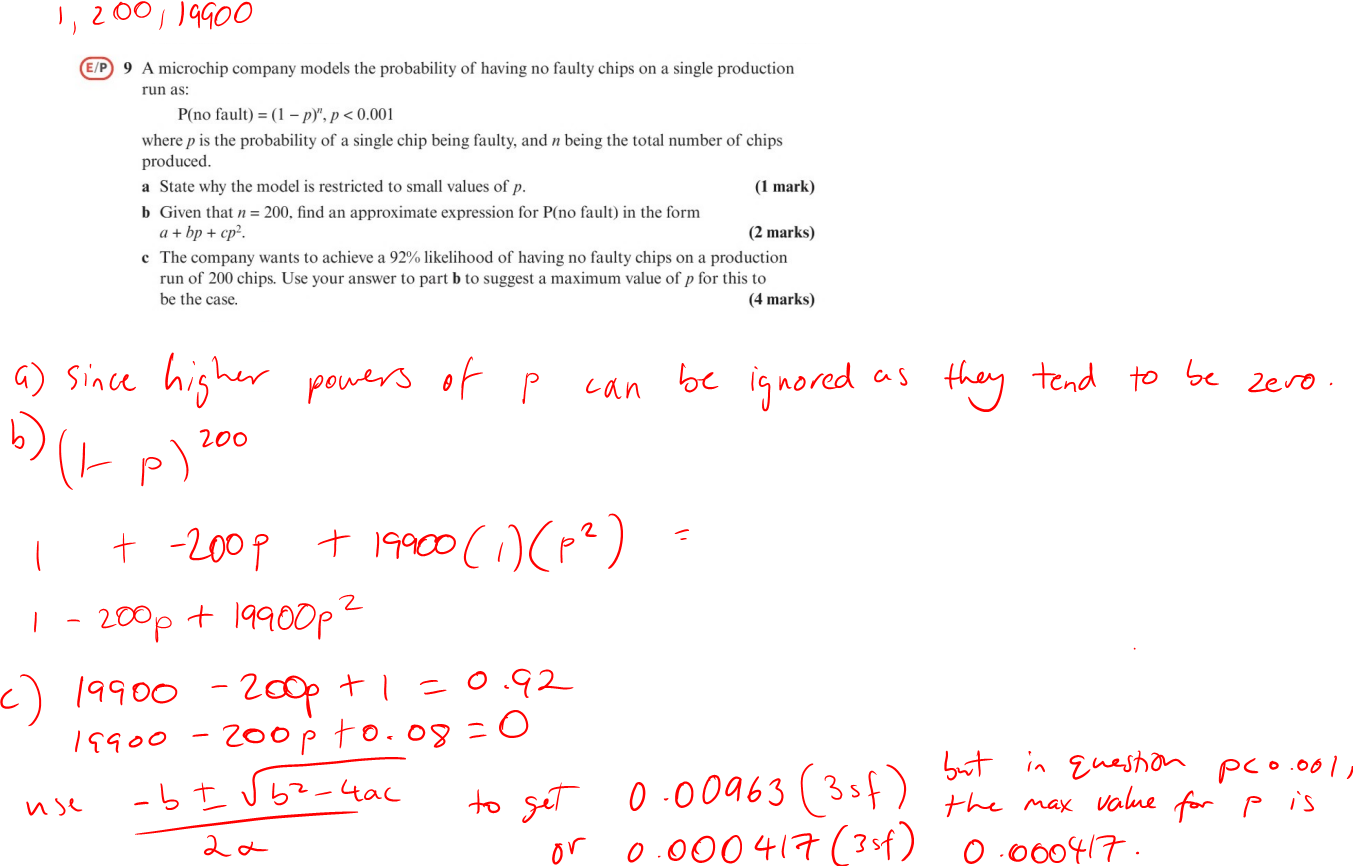 1, 200, 19900
E/P 9 A microchip company models the probability of having no faulty chips on a single production
run as:
P(no fault) = (1 – p)ⁿ, p < 0.001
where p is the probability of a single chip being faulty, and n being the total number of chips
produced.
a State why the model is restricted to small values of p. (1 mark)
b Given that n = 200, find an approximate expression for P(no fault) in the form
a + bp + cp². (2 marks)
c The company wants to achieve a 92% likelihood of having no faulty chips on a production
run of 200 chips. Use your answer to part b to suggest a maximum value of p for this to
be the case. (4 marks)
a) since higher powers of p can be ignored as they tend to be zero.
b) (1 - p)²⁰⁰
1 + -200p + 19900(1)(p²) =
1 - 200p + 19900p²
c) 19900 - 200p + 1 = 0.92
19900 - 200p + 0.08 = 0
use (-b ± √(b² - 4ac))/2a to get 0.00963 (3sf)
or 0.000417 (3sf)
but in question p<0.001,
the max value for p is
0.000417.